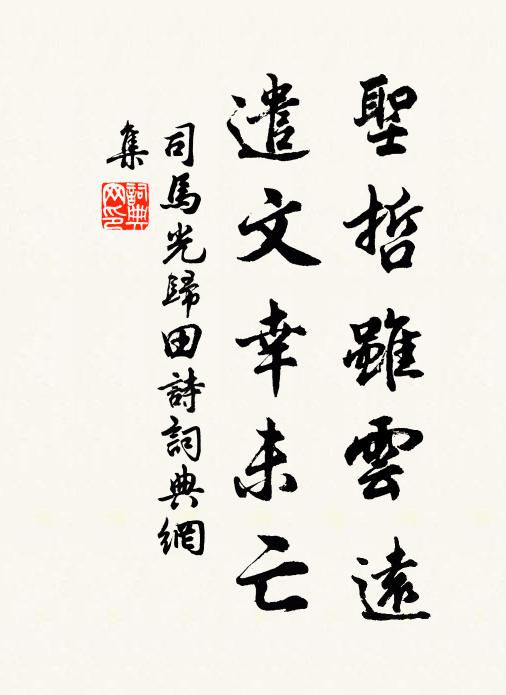 聖哲雖雲遠
遣文幸未亡
司馬光歸田詩詞典網
集
詞典网印